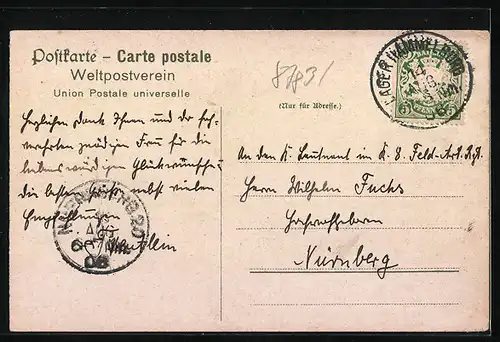 Postkarte – Carte postale
Weltpostverein
Union Postale universelle
(Nur für Adresse.)
87931
LAGER HAMMELBURG
14
AUG
08
Herzlichen Dank Ihnen und der sehr
verehrten gnädigen Frau für die
liebenswürdigen Glückwünsche
die besten Grüße nebst vielen
Empfehlungen
NUERNBERG 20
AUG
08
An den K. Leutnant im K. 8. Feld-Art. Rgt.
Herrn Wilhelm Fuchs
Hochwohlgeboren
Nürnberg